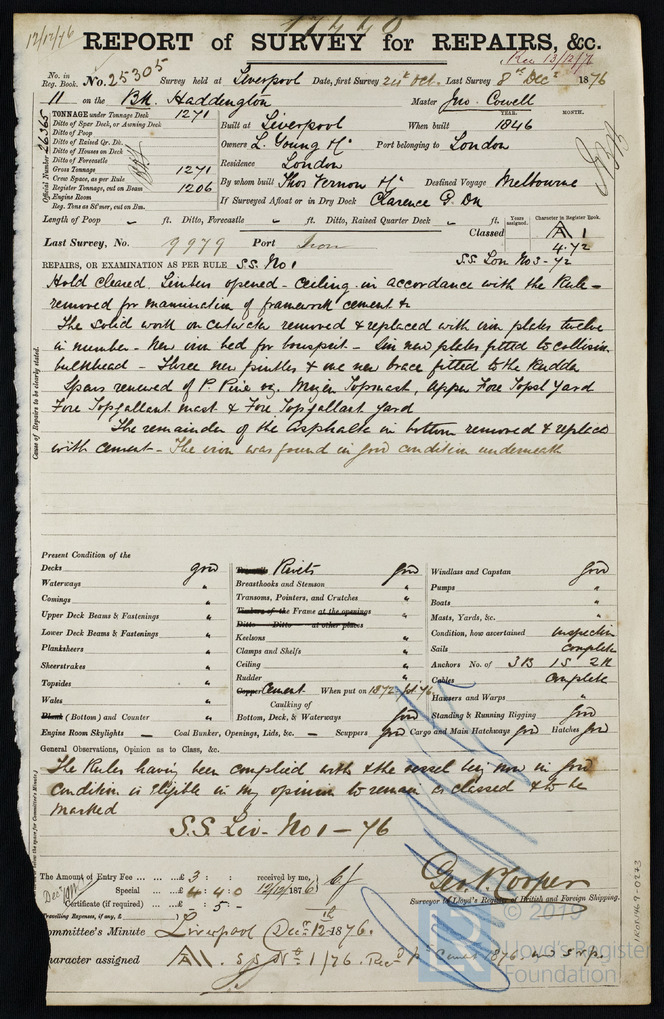 12/12/76
17440
REPORT of SURVEY for REPAIRS, &c.
Rec 13/12/76
No. in Reg. Book. No. 25305 Survey held at Liverpool Date, first Survey 24th Oct. Last Survey 8th Decr 1876
11 on the Bk. Haddington Master Jno. Cowell
TONNAGE under Tonnage Deck 1271
Ditto of Spar Deck, or Awning Deck
Ditto of Poop
Ditto of Raised Qr. Dk.
Ditto of Houses on Deck
Ditto of Forecastle
Gross Tonnage 1271
Crew Space, as per Rule
Register Tonnage, cut on Beam 1206
Engine Room
Reg. Tons as St'mer, cut on Bm.
Official Number 26365
YEAR. MONTH.
Built at Liverpool When built 1846
Owners L. Young Port belonging to London
Residence London
By whom built Thos Vernon Destined Voyage Melbourne
If Surveyed Afloat or in Dry Dock Clarence G. Dk
Length of Poop " ft. Ditto, Forecastle " ft. Ditto, Raised Quarter Deck " ft.
Years assigned. Character in Register Book.
Classed A 1
4.72
Last Survey, No. 9979 Port Iron
S.S. Lon No 3-72
REPAIRS, OR EXAMINATION AS PER RULE S.S. No 1
Hold cleared, Limbers opened - ceiling in accordance with the Rule -
removed for examination of framework cement &c
The solid work on removed & replaced with iron plates twelve
in number - New iron bed for bowsprit - Six new plates fitted to collision
bulkhead - Three new pintles & one new brace fitted to the Rudder
Spars renewed of P. Pine vz. Mizen Topmast, Upper Fore Topsl Yard
Fore Topgallant mast & Fore Topgallant yard
The remainder of the Asphalte in bottom removed & replaced
with cement - The iron was found in good condition underneath
Cause of Repairs to be clearly stated.
Present Condition of the
Decks good
Waterways "
Comings "
Upper Deck Beams & Fastenings "
Lower Deck Beams & Fastenings "
Planksheers "
Sheerstrakes "
Topsides "
Wales "
Blank (Bottom) and Counter "
Rivets good
Breasthooks and Stemson "
Transoms, Pointers, and Crutches "
Timbers of the Frame at the openings "
Ditto Ditto at other places
Keelsons "
Clamps and Shelfs "
Ceiling "
Rudder "
Copper Cement When put on 1872 pt 76
Caulking of
Bottom, Deck, & Waterways good
Windlass and Capstan good
Pumps "
Boats "
Masts, Yards, &c. "
Condition, how ascertained inspection
Sails complete
Anchors No. of 3 B 1 S 2 K
Cables complete
Hawsers and Warps "
Standing & Running Rigging good
Engine Room Skylights — Coal Bunker, Openings, Lids, &c. — Scuppers good Cargo and Main Hatchways good Hatches good
General Observations, Opinion as to Class, &c.
The Rules having been complied with & the vessel being now in good
condition is eligible in my opinion to remain as classed & to be
marked
S.S. Liv - No 1 - 76
The Amount of Entry Fee ... £3 : : received by me,
Special ... £4 : 4 : 0 12/12/1876
Certificate (if required) ... £ : 5 -
Travelling Expenses, if any, £
Geo. P. Cooper
Surveyor to Lloyd's Register of British and Foreign Shipping.
Committee's Minute Liverpool Decr 12th 1876.
Character assigned A1. S.S. No 1/76. pt Cement 1876
© 2019
Lloyd's Register
Foundation
IRON1469-0273